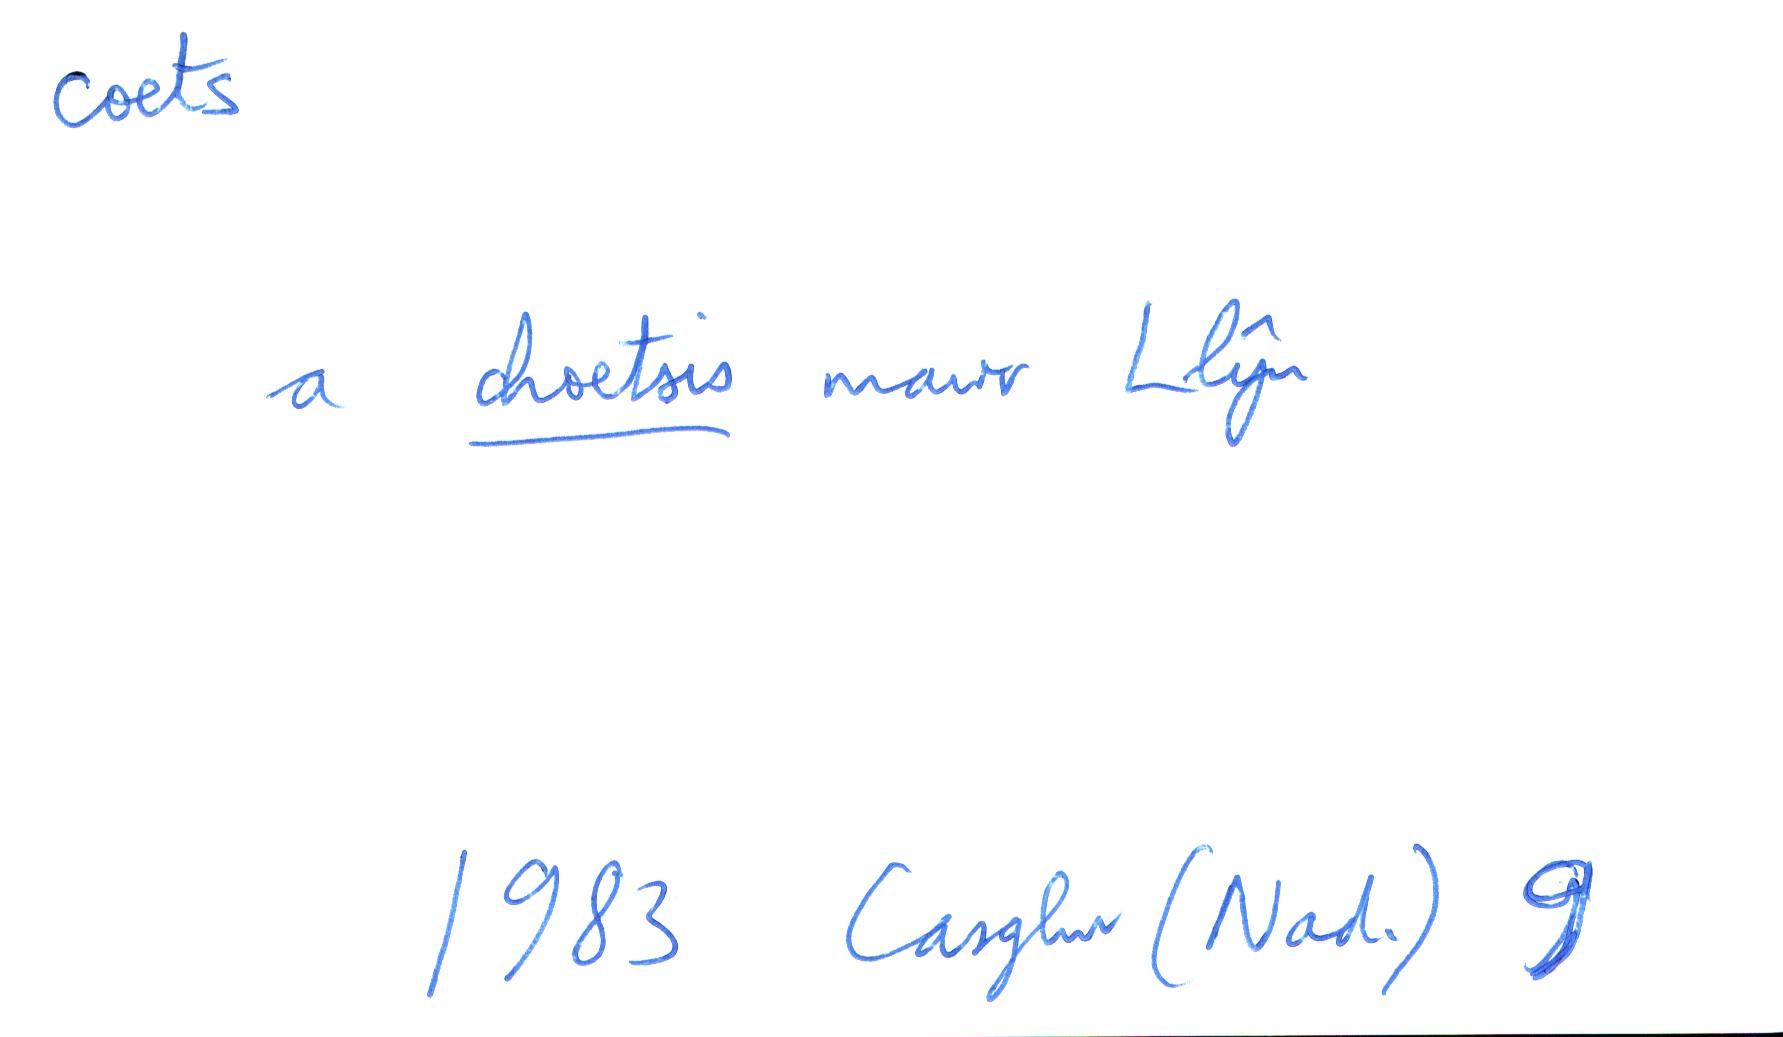 coets
a choetsis mawr Llŷn
1983 Casglwr (Nad.) 9